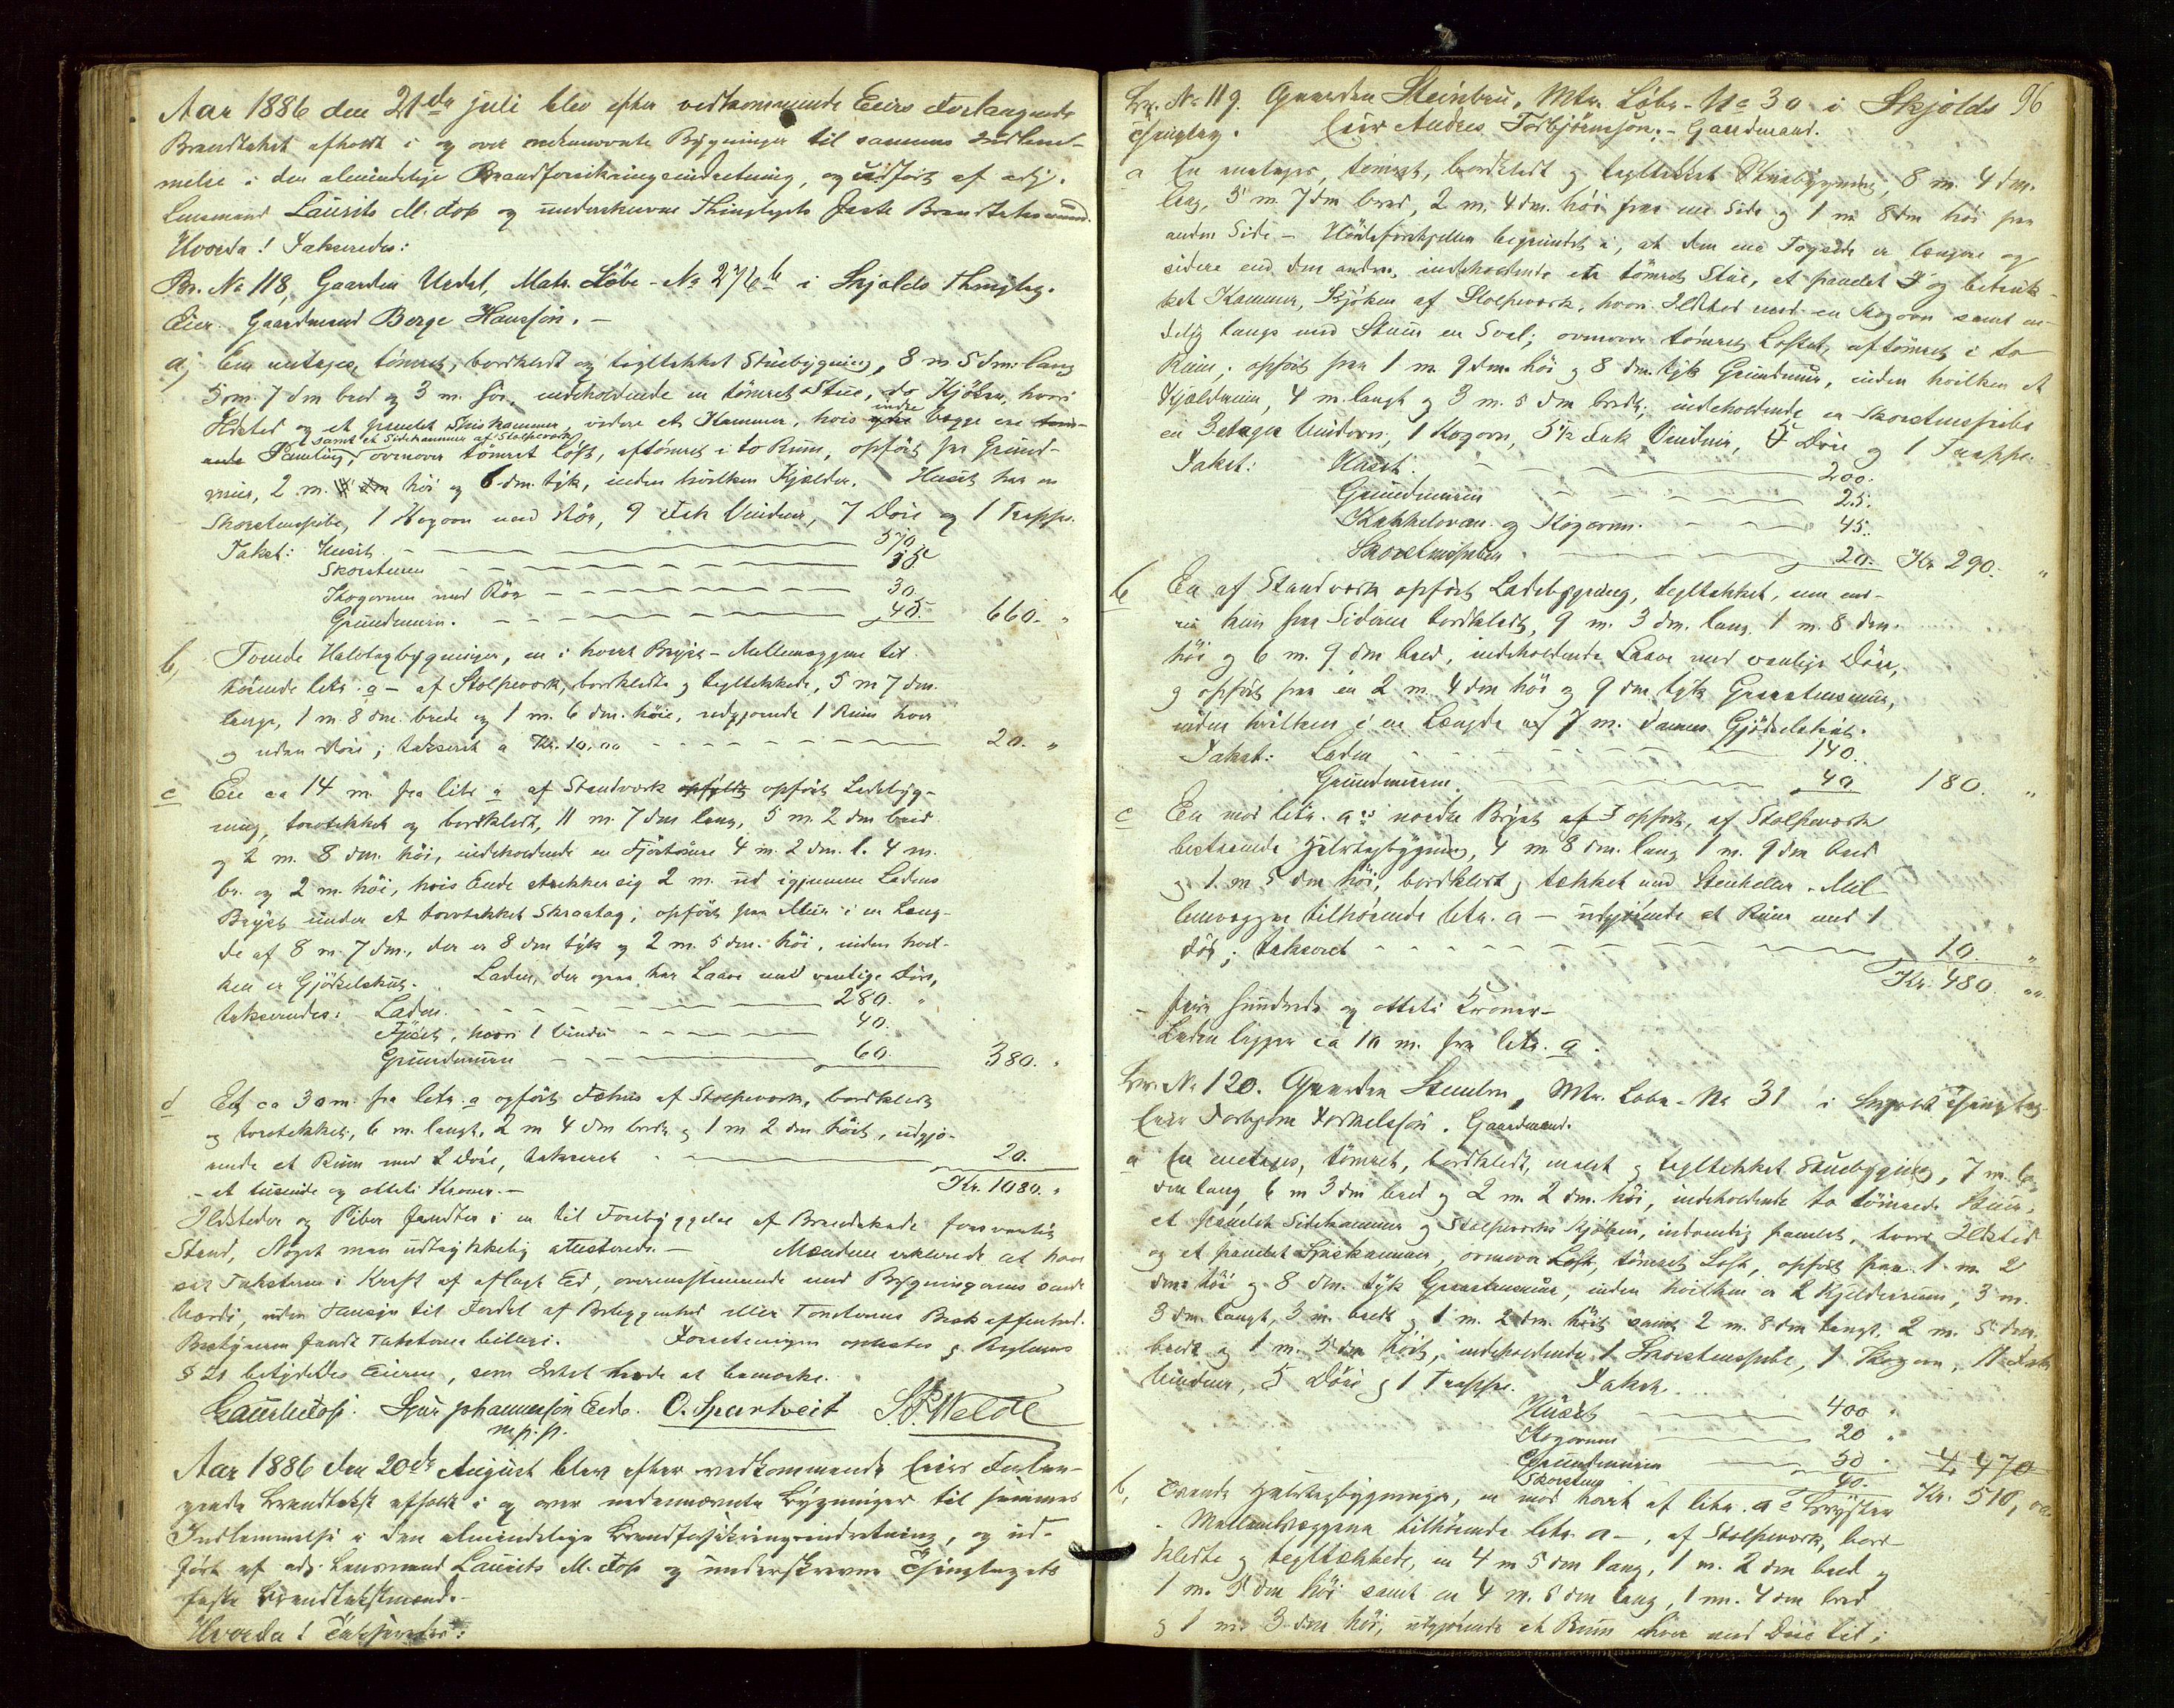 Aar 1886 den 21de juli blev efter vedkommende Eiers Forlangende
Brandtakst afholdt i og over nedennævnte Bygninger til sammes Indlem-
melse i den almindelige Brandforsikringsindretning, og udført af adj.
Lensmand Laurits M. Fos og underskrevne Thinglags faste Brandtakstmænd.
Hvorda! Takseredes:
Br. No 118, Gaarden Mat. Løbe-No 27/6b i Skjolds Thinglag.
Eier Gaardmand Børge Hansson. —
a, En entages, tømret, bordklædt og tegltækket Stuebygning, 8 m. 5 dm. lang
5 m. 7 dm bred og 3 m. høi, indeholdende en tømret Stue, do Kjøken, hvori
Ildsted og et panelet Spiskammer, videre et Kammer, hvis indre Vægge ere
samt et Sidekammer af Stolpeværk
Paneling, ovenover tømret Loft, aftømret i to Rum, opført paa Grund-
mur, 2 m. høi og 6 dm. tyk, inden hvilken Kjælder. Huset har en
Skorstenspibe, 1 Kogovn med Rør, 9 Fek Vinduer, 7 Døre og 1 Trappe.
Takst: Huset — 570
Skorstenen —
Kogovnen med Rør — 30.
Grundmuren. — 45. 660. "
b, Tvende Halvtagbygninger, en i hvert Bryst - Mellemvæggene til-
hørende litr. a — af Stolpeværk, bordklædte og tegltækkede, 5 m 7 dm.
lange, 1 m. 8 dm. brede og 1 m. 6 dm. høie, udgjørende 1 Rum hver
og uden Døre; takseret a Kr. 10,00 — 20. "
c En ca 14 m. fra litr a af Standværk opført Ladebyg-
ning, torvtækket og bordklædt, 11 m. 7 dm lang, 5 m. 2 dm bred
og 2 m. 8 dm. høi, indeholdende en Fjøstømre 4 m. 2 dm. l. 4 m.
br. og 2 m. høi, hvis Ende strekker sig 2 m. ud igjennem Ladens
Bryst under et torvtækket Skraatag; opført paa Mur i en Læng-
de af 8 m. 7 dm., der er 8 dm tyk og 2 m. 5 dm. høi, inden hvil-
ken er Gjødselshus. Laden, der ogsaa har Laave med vanlige Døre,
takseredes: Laden. — 280. "
Fjøset, hvori 1 Vindu — 40.
Grundmuren — 60. 380. "
d Et ca 30 m. fra litr. a opført Fæhus af Stolpeværk, bordklædt
og torvtækket, 6 m. langt, 2 m 4 dm bredt og 1 m 2 dm høit, udgjø-
rende et Rum med 2 Døre, takseret — 20.
— et tusinde og otteti Kroner. — Kr. 1080. "
Ildsteder og Piber fandtes i en til Forebyggelse af Brandskade forsvarlig
Stand, Noget man udtrykkelig attesterede. — Mændene erklærede at have
sat Taksterne i Kraft af aflagt Ed, overensstemmende med Bygningernes sande
Værdi, uden Hensyn til Fordel af Beliggenhed eller Tomternes Beskaffenhed.
Bestyreren fandt Taksterne billige. Forretningen oplæstes og Reglernes
§ 21 betydedes Eieren, som Intet havde at bemærke.
Laurits Fos. Sjur Johannesson Eede. O. Spartveit S. P. Welde
m. p. p.
Aar 1886 den 20de August blev efter vedkommende Eiers Forlan-
gende Brandtakst afholdt i og over nedennævnte Bygninger til sammes
Indlemmelse i den almindelige Brandforsikringsindretning, og ud-
ført af adj. Lensmand Laurits M. Fos og underskrevne Thinglagets
faste Brandtakstmænd. —
Hvorda! Takseredes:
96
Br. No 119. Gaarden Steinbru, Mtr. Løbe-No 30 i Skjolds
Thinglag. Eier Andres Torbjørnsøn. - Gaardmand.
a En enetages, tømret, bordklædt og tegltækket Stuebygning, 8 m. 4 dm.
lang, 5 m. 7 dm bred, 2 m. 4 dm. høi paa ene Side og 1 m 8 dm høi paa
anden Side — Høideforskjellen begrundet i, at den ene Fogside er længere og
videre end den andre, indeholdende en tømret Stue, et panelet og betræk-
ket Kammer, Kjøken af Stolpeværk, hvori Ildsted med en Kogovn samt en-
delig langs med Stuen en Sval; ovenover tømret Loftet, aftømret i to
Rum; opført paa 1 m. 9 dm. høi og 8 dm. tyk Grundmur, inden hvilken et
Kjælderrum, 4 m. langt og 3 m. 5 dm bredt; indeholdende en Skorstenspibe
en 3 etages Vindovn, 1 Kogovn, 5 1/2 Fek Vinduer, 5 Døre og 1 Trappe.
Takst: Huset — 200.
Grundmuren — 25.
Kakkelovnen og Kogovnen. — 45.
Skorstenspiben — 20. Kr 290. "
b En af Standværk opført Ladebygning, tegltækket, men
kun paa Siderne bordklædt, 9 m. 3 dm. lang 1 m. 8 dm.
høi og 6 m. 9 dm bred, indeholdende Laave med vanlige Døre,
og opført paa en 2 m. 4 dm høi og 9 dm. tyk Graastensmur,
inden hvilken i en Længde af 7 m. dannes Gjødselshus.
Takst: Laden — 140.
Grundmuren — 40 180. "
c En mod litr. a's nordre Bryst opført, af Stolpeværk
bestaaende Halvtagbygning, 4 m 8 dm. lang 1 m. 9 dm bred
og 1 m 5 dm høi, bordklædt og tækket med Stenheller. Mel-
lemvæggen tilhørende litr. a — udgjørende et Rum med 1
Dør; takseret — 10. "
Kr. 480. "
— fire hundrede og otteti Kroner —
Laden ligger ca 10 m. fra litr. a.
Br. No 120. Gaarden Steinbru, Mtr. Løbe-No 31 i Skjolds Thinglag
Eier Torbjørn Torkelsøn. Gaardmand.
a En enetages, tømret, bordklædt, malet og tegltækket Stuebygning, 7 m. 6
dm lang, 6 m 3 dm bred og 2 m. 2 dm. høi, indeholdende to tømrede Stuer,
et panelet Sidekammer og Stolpeværks Kjøken, indvendig panelet, hvori Ildsted
og et panelet Spiskammer, ovenover tømret Loft, opført paa 1 m 2
dm. høi og 8 dm. tyk Graastensmur, inden hvilken er 2 Kjelderrum, 3 m.
3 dm. langt, 3 m. bredt og 1 m. 2 dm. høit samt 2 m. 8 dm langt, 2 m. 5 dm.
bredt og 1 m. 5 dm høit, indeholdende 1 Skorstenspibe, 1 Kogovn, 11 Fek
Vinduer, 5 Døre og 1 Trappe. Takst.
Huset — 400 "
Kogovnen — 20 "
Grundmuren — 50 " 470
Skorsten — 40. Kr. 510,
b, Tvende Halvtagbygninger, en mod hvert af litr. a's Bryster
. Mellemvæggene tilhørende litr. a —, af Stolpeværk, bord-
klædte og tegltækkede, en 4 m 5 dm lang, 1 m. 2 dm bred og
1 m. 5 dm høi samt en 4 m. 5 dm lang, 1 m. 4 dm bred
og 1 m. 3 dm høi, udgjørende et Rum hver med Døre til;